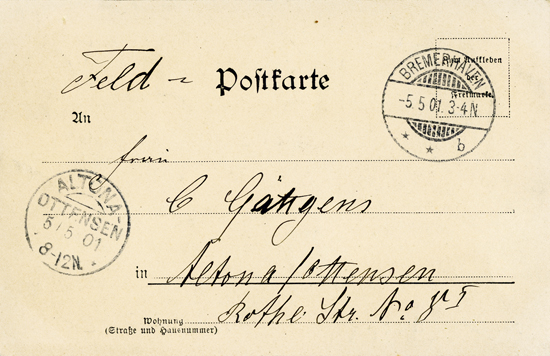 Feld = Postkarte
Zum Aufkleben
der
Freimarke.
BREMERHAVEN
-5.5.01.3-4N
* * b
An
Frau
C Gättgens
ALTONA-
OTTENSEN
5/5 01
8-12N.
in Altona/Ottensen
Rothe Str. No
Wohnung
(Straße und Hausnummer)